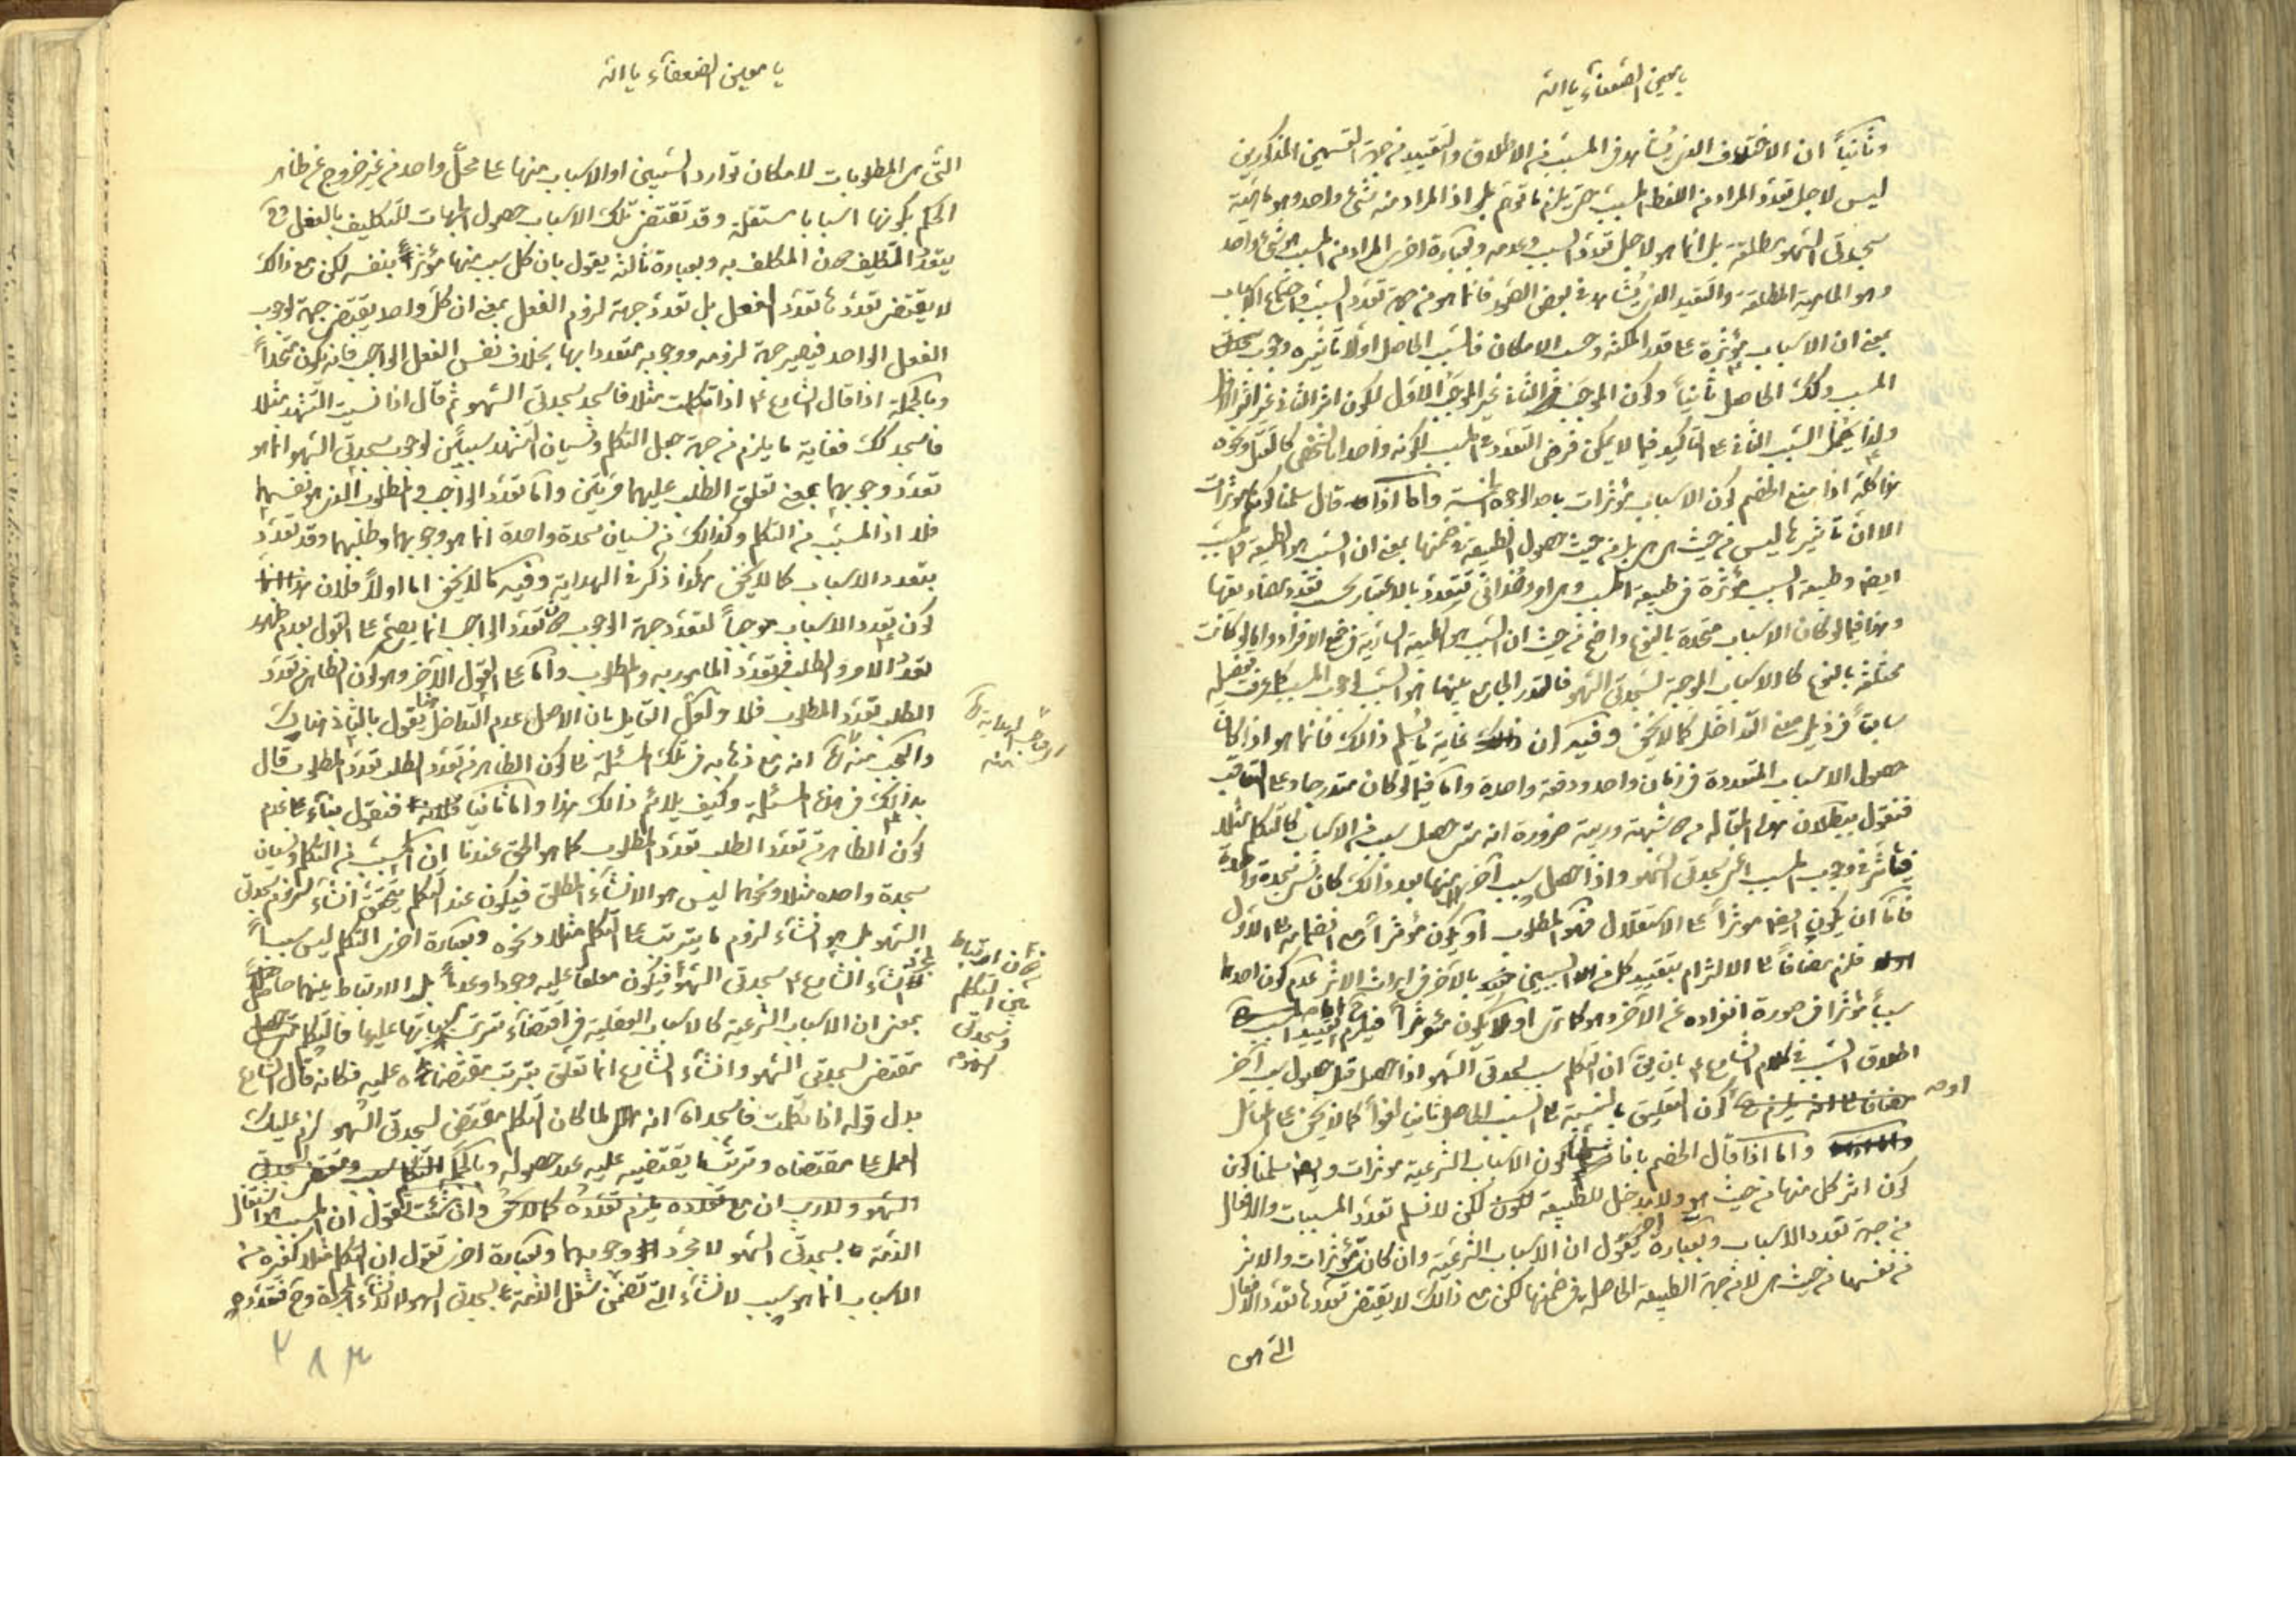 يا معين الضعفآء يا الله
وثانياً ان الاختلاف الذى يُشاهد فى المسبّب من الاطلاق والتقييد من جهة القسمين المذكورين
ليس لاجل تعدّد المراد من اللفظ المسبّب حتى يلزم ما توهم بل اذ المراد منه شئ واحد وهو ماهيّة
سجدتى السّهو مطلقة بل انما هو لاجل تعدّد السبب وعدمه وبعبارة اخرى المراد من المسبب هو شئ واحد
وهو الماهية المطلقة والتقييد الذى يُشاهد فى بعض الصّور فانما هو من جهة تعدّد السّبب واجتماع الاسباب
بمعنى ان الاسباب مؤثرة على قدر المكنة وحسب الامكان فالسّبب الحاصل اولاً تأثيره وجوب
المسبب وكك الحاصل ثانياً وكون الموجَب فى الثانى غير الموجَب الاوّل لكون اثر الثانى غير اثر الاول
ولذا يُحمل السّبب الثانى على التأكيد فيما لا يمكن فرض التعدّد فى المسبب لكونه واحدا بالشخص كالقتل ونحوه
هذا كلّه اذا منع الخصم كون الاسباب مؤثرات باحد الوجوه الخمسة واما اذا قال سلّمنا كونها مؤثرات
الا ان تأثيرها ليس من حيث هى هى بل من حيث حصول الطبيعة فى ضمنها بمعنى ان السّبب هو الطبيعة والمسبّب
ايضا وطبيعة السبب مؤثرة فى طبيعة المسبب وهى امر وحدانى يتعدّد بالاعتبار بحسب تعدّد مصاديقها
وهذا فيما لو كان الاسباب متحدة بالنوع واضح من حيث ان السّبب هو الطبيعة السارية فى جميع الافراد واما لو كانت
مختلفة بالنوع كالاسباب الموجبة لسَجدتى السّهو فالقدر الجامع بينها هو السّبب لوجوب المسبب كما عرفت تفصيله
سابقاً فى ذيل معنى التداخل كما لا يخفى وفيه ان غاية ما يُسلم ذالك فانما هو اذا كان
حصول الاسباب المتعددة فى زمان واحد ودفعة واحدة واما فيما لو كان متدرجا وعلى التعاقب
فنقول ببطلان هذا المقاله من شبهة وريبة ضرورة انه متى حصل سبب من الاسباب كالتكلم مثلا
فيتأثر فى وجوب المسبب اعنى سجدتى السّهو واذا حصل سبب آخر منها بعد ذالك كان نسى سجدة واحدة
فاما ان يكون ايضا مؤثراً على الاستقلال فهو المطلوب أو يكون مؤثراً مع انضمامه على الاوّل
فلزم مضافاً على الالتزام بتقييد كل من السببين بالآخر فى ايراث الاثر عدم كون احدها
سبباً مؤثراً فى صورة انفراده عن الآخر وهو كما ترى او لا يكون مؤثراً فيلزم ح اما تقييد
اطلاق السّبب فى كلام الشارع ع بان يق ان التكلم سبب لسجدتى السّهو اذا حصل قبل حصول سبب آخر
او مه كون التعليق بالنسبة على السّبب الحاصل ثانيا لغواً كما لا يخفى على المتأمل
واما اذا قال الخصم بانا كون الاسباب الشرعية مؤثرات وايضا سلمنا كون
كون اثر كل منها من حيث هو ولا مدخل للطبيعة لكن لا نسلم تعدّد المسببات والافعال
من جهة تعدد الاسباب وبعبارة اخرى يقول ان الاسباب الشرعيّة وان كان مؤثرات والاثر
من نفسها من حيث هى لا من جهة الطبيعة الحاصلة فى ضمنها لكن مع ذالك لا يقتضى تعدّدها تعدّد الافعال
التى هى
يا معين الضعفآء يا الله
التّى هى المطلوبات لامكان توارد السّببين او الاسباب منها على محلّ واحد من غير خروج عن ظاهر
الحكم بكونها اسبابا مستقلة وقد تقتضى تلك الاسباب حصول الجهات للتكليف بالفعل
يتعدّد التكليف المكلف به وبعبارة ثالثة يقول بان كل سبب منها مؤثراً بنفسه لكن مع ذالك
لا يقتضى تعدّدها تعدّد الفعل بل تعدّد جهة لزوم الفعل بمعنى ان كلّ واحد يقتضى جهة لوجوب
الفعل الواحد فيصير جهة لزومه ووجوبه متعددا بها بخلاف نفس الفعل الواجب فانه يكون متحداً
وبالجملة اذا قال الشارع ع اذا تكلمت مثلا فاسجد سجدتى السّهو ثم قال اذا نسيت التّشهد مثلا
فاسجد كك فغاية ما يلزم من جهة جعل التكلم ونسيان التشهد سببين لوجوب سجدتى السّهو انما هو
تعدّد وجوبهما بمعنى تعلق الطلب عليهما مرتين واما تعدّد الواجب والمطلوب الذى هو نفسهما
فلا اذ المسبّب من التكلم وكذالك من نسيان سجدة واحدة انما هو وجوبهما وطلبهما وقد تعدّد
بتعدد الاسباب كما لا يخفى هكذا ذكر فى الهداية وفيه كما لا يخفى اما اولاً فلان هذا
كون تعدد الاسباب موجباً لتعدّد جهة الوجوب تعدّد الواجب انما يصحّ على القول بعدم ظهور
تعدّد الامر والطلب فى تعدّد المامور به والمطلوب واما على القول الآخر وهو كون الظاهر من تعدّد
الطلب تعدّد المطلوب فلا ولعلّ القايل بان الاصل عدم التداخل يقول بالثانى هناك
والعجب منه انه مع ذهابه فى تلك المسئلة على كون الظاهر من تعدّد الطلب تعدّد المطلوب قال
بذالك فى هذه المسئلة وكيف يلائم ذالك هذا واما ثانيا فنقول بناء على عدم
كون الظاهر من تعدّد الطلب تعدّد المطلوب كما هو الحق عندنا ان المسبّب من التكلم ونسيان
سجدة واحده مثلا ونحوهما ليس هو الانشآء المطلق فيكون عند التكلم يتحقق انشآء لزوم سجدتى
السّهو بل هو انشآء لزوم ما يترتب على التكلم مثلا ونحوه وبعبارة اخرى التكلم ليس سبباً
لانشآء الشارع ع سجدتى السّهو فيكون معلقا عليه وجودا وعدماً بل الارتباط بينهما حاصل
بمعنى ان الاسباب الشرعية كالاسباب العقلية فى اقتضآء ترتب مسبباتها عليها فالتكلم
مقتضى لسجدتى السّهو وانشآء الشارع انما تعلق بترتب مقتضاه عليه فكانه قال الشارع
بدل قوله اذا تكلمت فاسجد انه لما كان التكلم مقتضى لسجدتى السّهو لزم عليك
العمل على مقتضاه وترتّب ما يقتضيه عليه عند حصوله وبالجملة
السّهو ولا ريب ان مع تعدده يلزم تعدّده كما لا يخفى وان شئت تقول ان المسبب هو اشتغال
الذمّة بسجدتى السّهو لا مجرد وجوبهما وبعبارة اخرى تقول ان التكلم مثلا كغيره من
الاسباب انما هو سبب لانشآء التى تضمن شغل الذمّة بسجدتى السهو لا لانشآء المجرّدة وح فتعدّده
اى صاحب الهداية
منه
ارتباط
بين التكلم
وسجدتى
السّهو منه